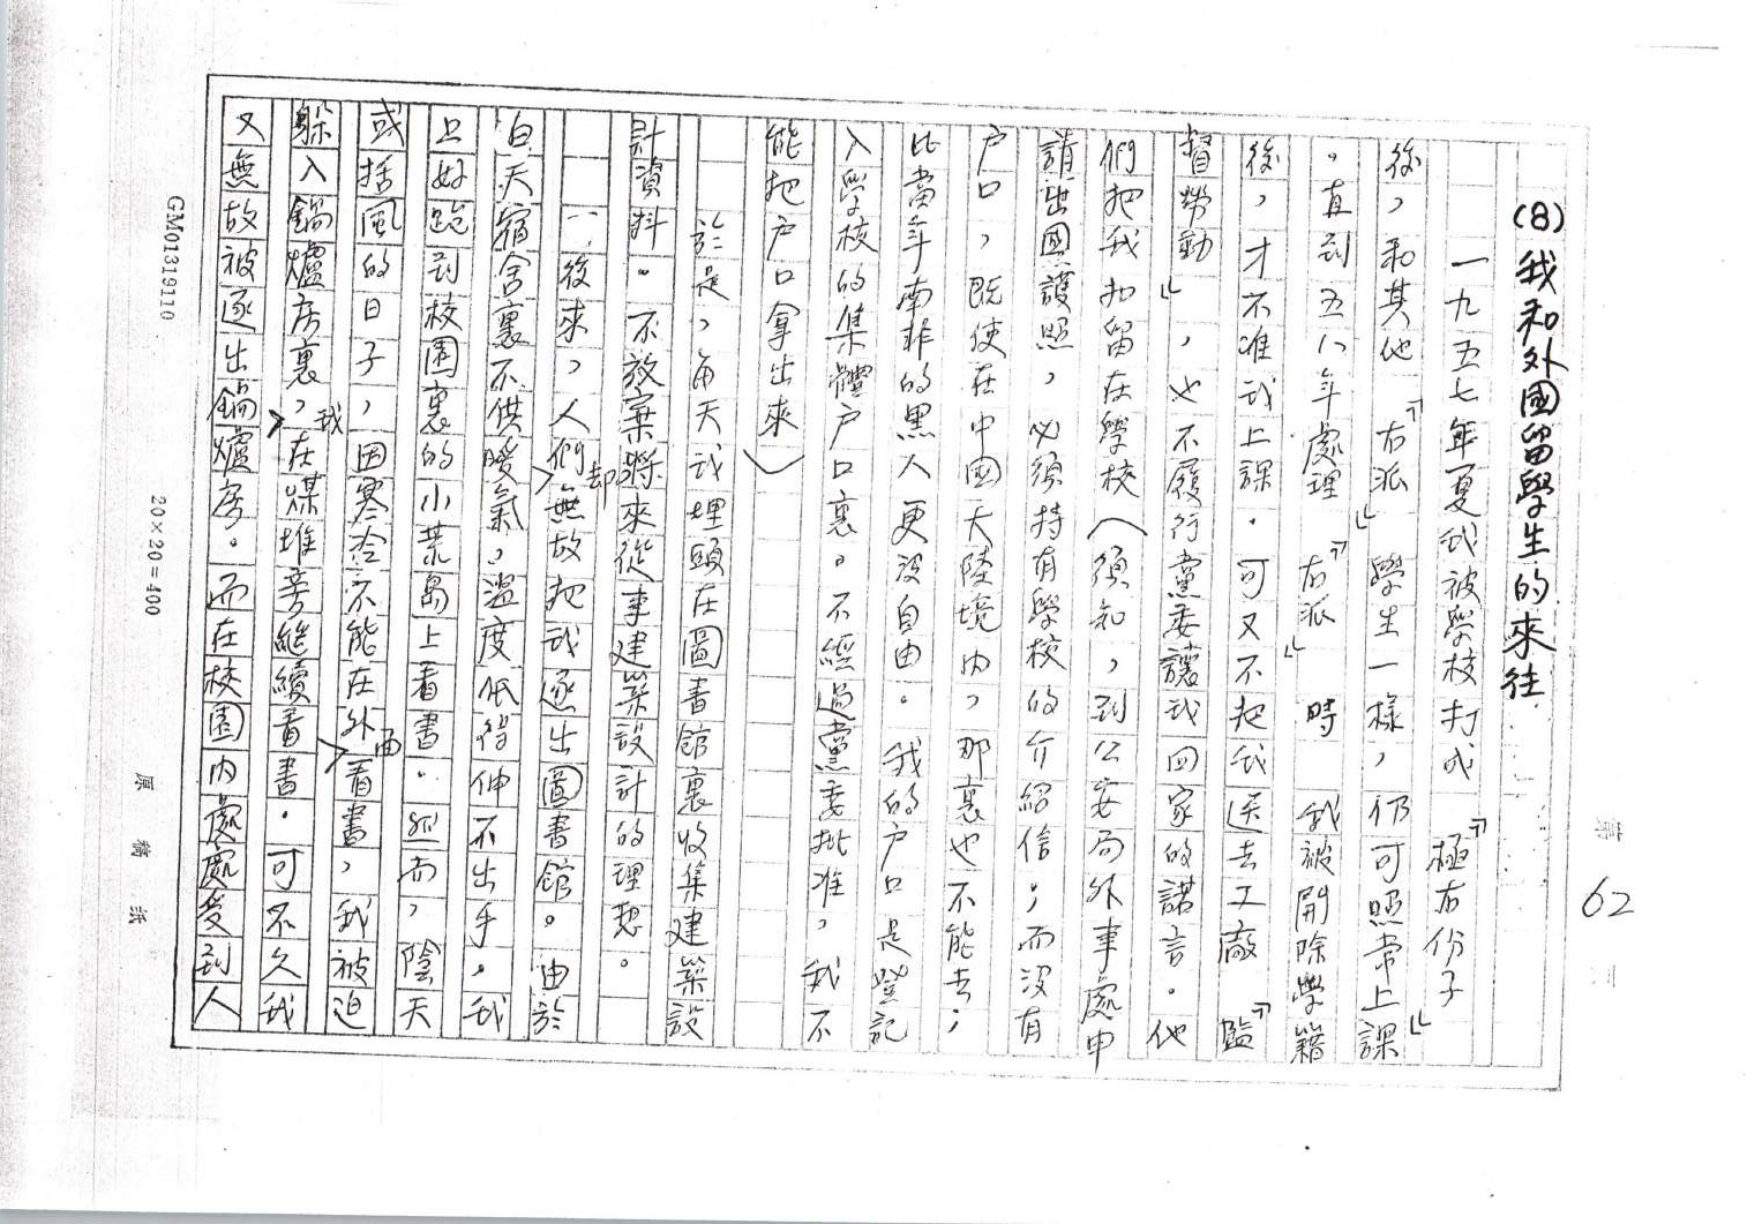 (8)我和外國留學生的來往
一九五七年夏我被學校打成『極右份子』
後，和其他『右派』學生一樣，仍可照常上課
。直到五八年處理『右派』時 我被開除學籍
後，才不准我上課．可又不把我送去工廠『監
督勞動』，也不履行黨委讓我回家的諾言。他
們把我扣留在學校（須知，到公安局外事處申
請出國護照，必須持有學校的介紹信；而沒有
户口，既使在中國大陸境内，那裏也不能去；
比當年南非的黑人更沒自由．我的户口是登記
入學校的集體户口裏。不經過黨委批准，我不
能把户口拿出來）
於是，每天我埋頭在圖書館裏收集建築設
計資料。不放棄將來從事建築設計的理想。
後來，人們却無故把我逐出圖書館。由於
白天宿舍裏不供暖氣，溫度低得伸不出手。我
只好跑到校園裏的小荒島上看書．然而，陰天
或括風的日子，因寒冷不能在外面看書，我被迫
躲入鍋爐房裏，我在煤堆旁繼續看書．可不久我
又無故被逐出鍋爐房．而在校園内處處受到人
第 62 頁
GM01319110
20×20=400
原稿紙